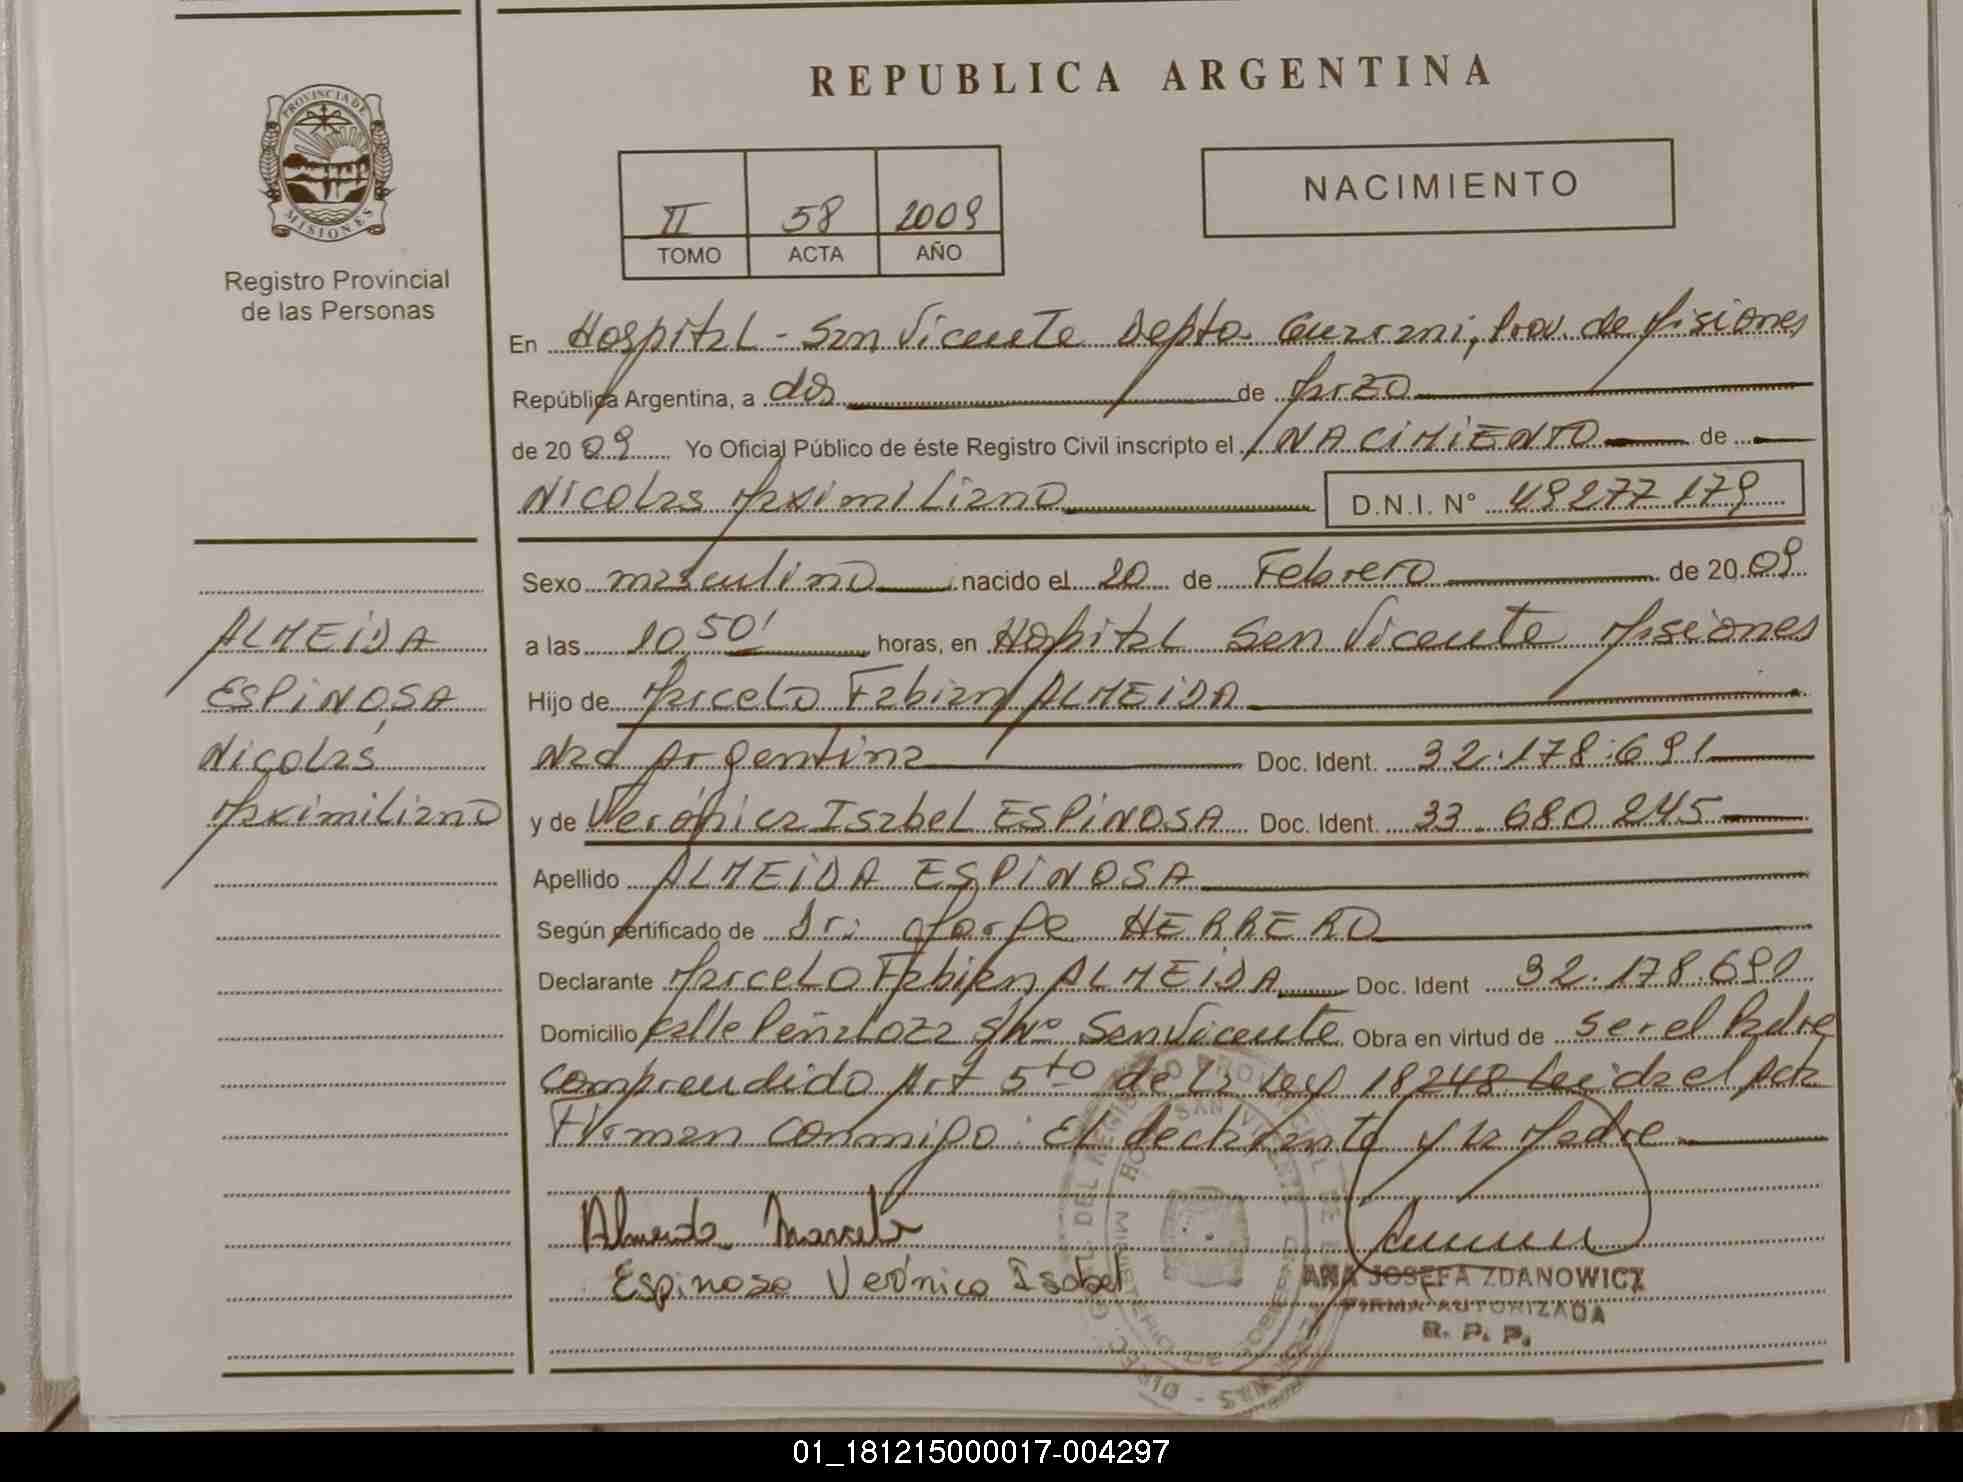 REPUBLICA ARGENTINA
PROVINCIA DE
MISIONES
Registro Provincial
de las Personas
II 58 2009
TOMO ACTA AÑO
NACIMIENTO
En Hospital - San Vicente Depto Guarani, Prov. de Misiones
República Argentina, a dos de Marzo
de 2009 Yo Oficial Público de éste Registro Civil inscripto el NACIMIENTO de
Nicolas Maximiliano D.N.I. N° 49277179
Sexo masculino nacido el 20 de Febrero de 2009
a las 10,50' horas, en Hospital San Vicente Misiones
Hijo de Marcelo Fabian ALMEIDA
Nac Argentina Doc. Ident. 32.178.691
y de Verónica Isabel ESPINOSA Doc. Ident. 33.680.245
Apellido ALMEIDA ESPINOSA
Según certificado de Dr: Jorge HERRERO
Declarante Marcelo Fabian ALMEIDA Doc. Ident 32.178.691
Domicilio Calle Peñaloza S/Nº San Vicente Obra en virtud de ser el Padre
comprendido Art 5to de la Ley 18248 Leida el acta
Firman conmigo: El declarante y la Madre
ALMEIDA
ESPINOSA
Nicolás
Maximiliano
Almeida Marcelo
Espinosa Verónica Isabel
ANA JOSEFA ZDANOWICZ
FIRMA AUTORIZADA
R. P. P.
01_181215000017-004297